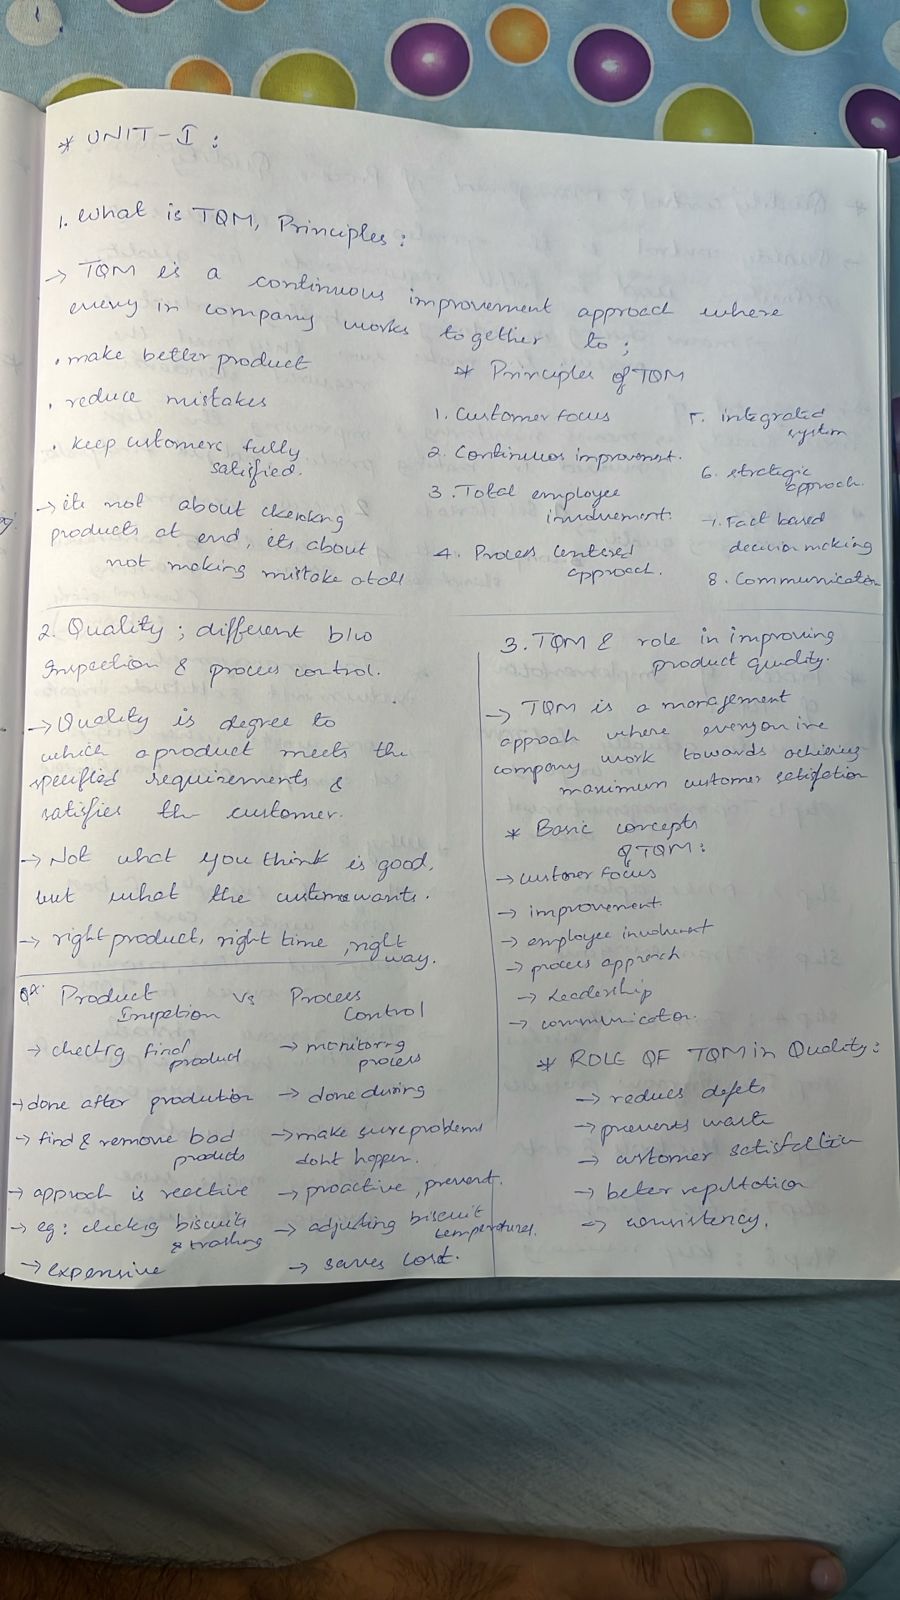 * UNIT-I :
1. What is TQM, Principles :
→ TQM is a continuous improvement approach where
every in company works together to ;
• make better product
• reduce mistakes
• keep customers fully
satisfied.
→ its not about checking
products at end, its about
not making mistake atall
* Principles of TQM
1. Customer focus
2. Continuous improvement.
3. Total employee
involvement.
4. Process centered
approach.
5. integrated
system
6. strategic
approach.
7. Fact based
decision making
8. Communication
2. Quality ; different b/w
Inspection & process control.
→ Quality is degree to
which a product meets the
specified requirements &
satisfies the customer.
→ Not what you think is good,
but what the customer wants.
→ right product, right time, right
way.
Product
Inspetion Vs Process
Control
→ checking final
product
→ done after production
→ find & remove bad
products
→ approch is reactive
→ eg: checking biscuits
& trashing
→ expensive
→ monitoring
process
→ done during
→ make sure problems
dont happen.
→ proactive, prevent.
→ adjusting biscuit
temperatures.
→ saves cost.
3. TQM & role in improving
product quality.
→ TQM is a management
approah where everyon in
company work towards achieving
maximum customer satisfation
* Basic concepts
of TQM :
→ customer focus
→ improvement.
→ employee involvment
→ process approach
→ Leadership
→ communication.
* ROLE OF TQM in Quality :
→ reduces defets
→ prevents waste
→ customer satisfaction
→ beter reputation
→ consistency.